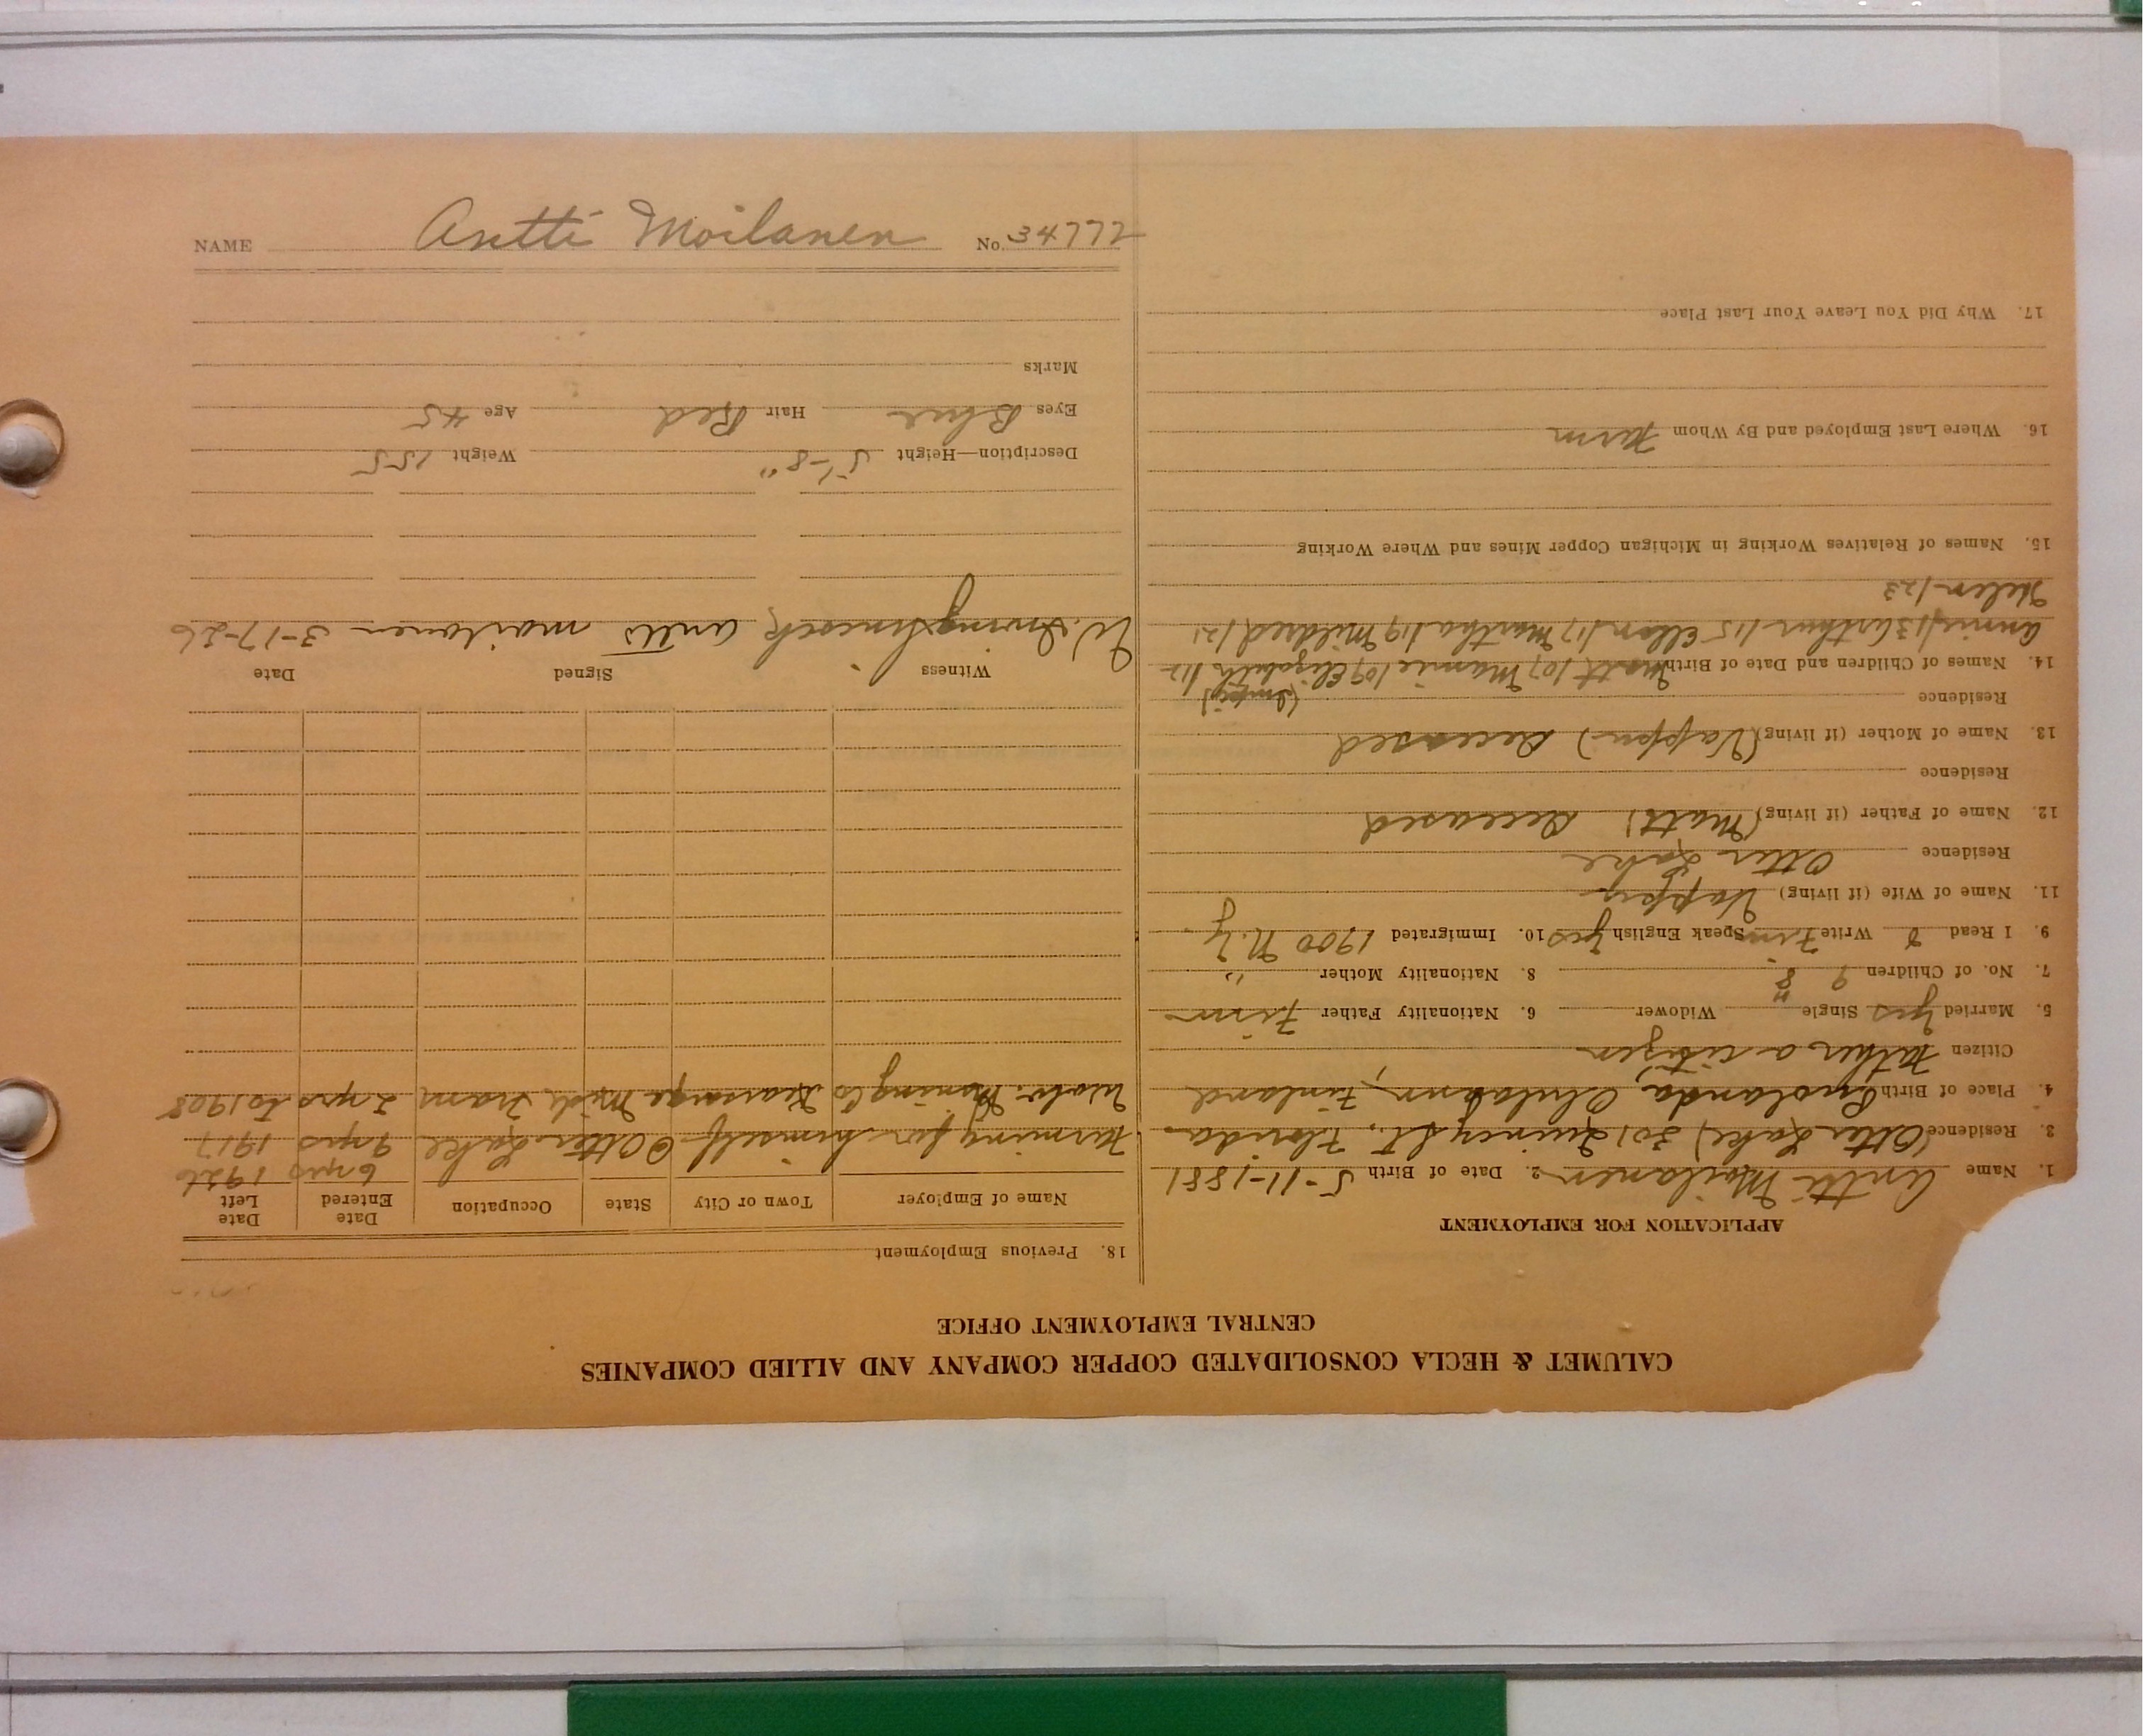 CALUMET & HECLA CONSOLIDATED COPPER COMPANY AND ALLIED COMPANIES
CENTRAL EMPLOYMENT OFFICE
APPLICATION FOR EMPLOYMENT
1. Name Antti Moilanen 2. Date of Birth 5-11-1881
3. Residence (Otter Lake) 301 Quincy St., Florida
4. Place of Birth Puolanda, Finland
Citizen Father a citizen
5. Married Yes Single Widower 6. Nationality Father Finn
7. No. of Children 9 8 8. Nationality Mother "
9. I Read & Write Finn Speak English Yes 10. Immigrated 1900 N.Y.
11. Name of Wife (if living) Vappu
Residence Otter Lake
12. Name of Father (if living) (Matt) Deceased
Residence
13. Name of Mother (if living) (Vappu) Deceased
Residence
14. Names of Children and Date of Birth Matt /07 Mamie /09 Elizabeth /12
Annie /13 Arthur /15 Ellen /17 Martha /19 Mildred /21
Helen /23
15. Names of Relatives Working in Michigan Copper Mines and Where Working
16. Where Last Employed and By Whom Farm
17. Why Did You Leave Your Last Place
18. Previous Employment
Name of Employer Town or City State Occupation Date Entered Date Left
6 yrs 1926
Farming for himself @ Otter Lake 9 yrs 1917
Wolv. Mining Co Kearsarge Mich Tram 2 yrs to 1908
Witness Signed Date
W. Irving Antti Moilanen 3-17-26
Description—Height 5'-8" Weight 155
Eyes Blue Hair Red Age 45
Marks
NAME Antti Moilanen No. 34772